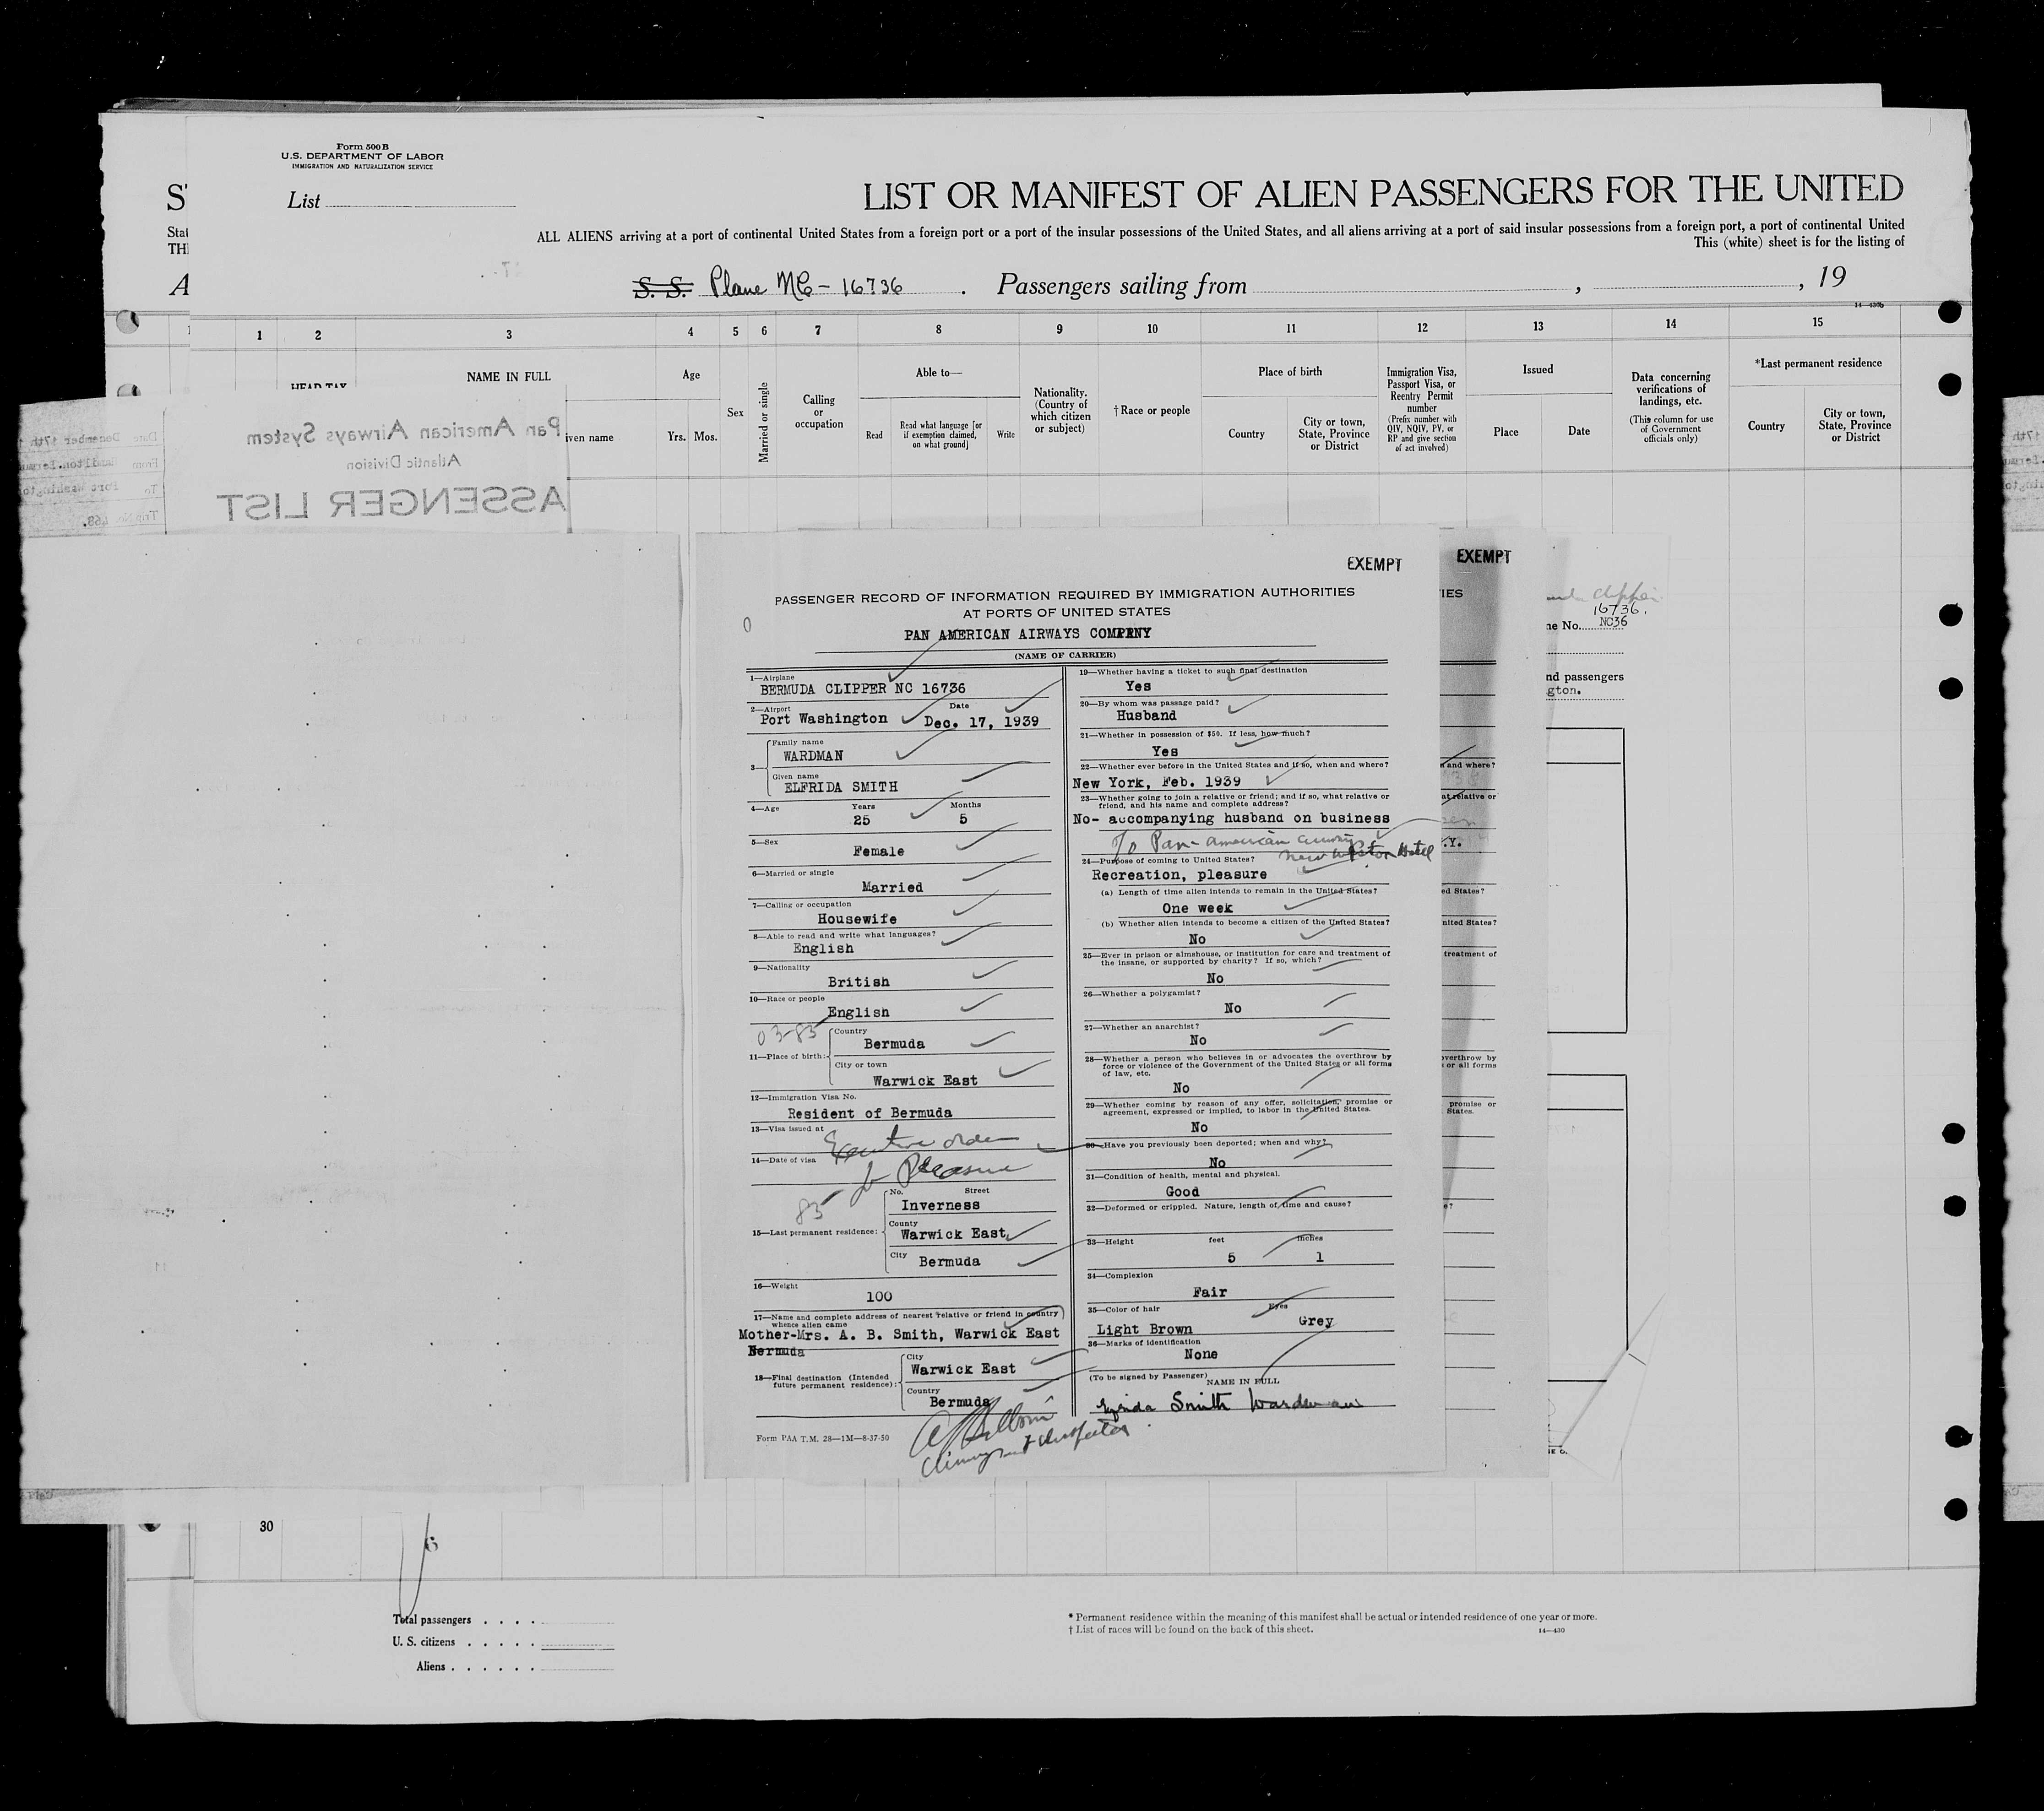 Form 500 B
U.S. DEPARTMENT OF LABOR
IMMIGRATION AND NATURALIZATION SERVICE
List
LIST OR MANIFEST OF ALIEN PASSENGERS FOR THE UNITED
ALL ALIENS arriving at a port of continental United States from a foreign port or a port of the insular possessions of the United States, and all aliens arriving at a port of said insular possessions from a foreign port, a port of continental United
This (white) sheet is for the listing of
S. S. Plane NC-16736 . Passengers sailing from , , 19
1 2 3 4 5 6 7 8 9 10 11 12 13 14 15
HEAD TAX
NAME IN FULL
iven name
Age
Yrs. Mos.
Sex
Married or single
Calling
or
occupation
Able to—
Read
Read what language [or
if exemption claimed,
on what ground]
Write
Nationality.
(Country of
which citizen
or subject)
† Race or people
Place of birth
Country
City or town,
State, Province
or District
Immigration Visa,
Passport Visa, or
Reentry Permit
number
(Prefix number with
QIV, NQIV, PV, or
RP and give section
of act involved)
Issued
Place
Date
Data concerning
verifications of
landings, etc.
(This column for use
of Government
officials only)
*Last permanent residence
Country
City or town,
State, Province
or District
Pan American Airways System
Atlantic Division
ASSENGER LIST
Date December 17th
From Hamilton.Bermu
To Port Washingto
Trip No. 468.
EXEMPT
PASSENGER RECORD OF INFORMATION REQUIRED BY IMMIGRATION AUTHORITIES
AT PORTS OF UNITED STATES
PAN AMERICAN AIRWAYS COMPANY
(NAME OF CARRIER)
1—Airplane
BERMUDA CLIPPER NC 16736
2—Airport Date
Port Washington Dec. 17, 1939
3— Family name
WARDMAN
Given name
ELFRIDA SMITH
4—Age Years Months
25 5
5—Sex
Female
6—Married or single
Married
7—Calling or occupation
Housewife
8—Able to read and write what languages?
English
9—Nationality
British
10—Race or people
English
03-85
11—Place of birth: Country
Bermuda
City or town
Warwick East
12—Immigration Visa No.
Resident of Bermuda
13—Visa issued at
Executive order
14—Date of visa
for Pleasure
85
15—Last permanent residence: No. Street
Inverness
County
Warwick East
City
Bermuda
16—Weight
100
17—Name and complete address of nearest relative or friend in country
whence alien came
Mother-Mrs. A. B. Smith, Warwick East
Bermuda
18—Final destination (Intended
future permanent residence): City
Warwick East
Country
Bermuda
Form PAA T.M. 28—1M—8-37-50
Immigrant Inspector
19—Whether having a ticket to such final destination
Yes
20—By whom was passage paid?
Husband
21—Whether in possession of $50. If less, how much?
Yes
22—Whether ever before in the United States and if so, when and where?
New York, Feb. 1939
23—Whether going to join a relative or friend; and if so, what relative or
friend, and his name and complete address?
No- accompanying husband on business
c/o Pan-American Airways
New Weston Hotel
24—Purpose of coming to United States?
Recreation, pleasure
(a) Length of time alien intends to remain in the United States?
One week
(b) Whether alien intends to become a citizen of the United States?
No
25—Ever in prison or almshouse, or institution for care and treatment of
the insane, or supported by charity? If so, which?
No
26—Whether a polygamist?
No
27—Whether an anarchist?
No
28—Whether a person who believes in or advocates the overthrow by
force or violence of the Government of the United States or all forms
of law, etc.
No
29—Whether coming by reason of any offer, solicitation, promise or
agreement, expressed or implied, to labor in the United States.
No
30—Have you previously been deported; when and why?
No
31—Condition of health, mental and physical.
Good
32—Deformed or crippled. Nature, length of time and cause?
33—Height feet inches
5 1
34—Complexion
Fair
35—Color of hair Eyes
Light Brown Grey
36—Marks of identification
None
(To be signed by Passenger)
NAME IN FULL
Elfrida Smith Wardman
EXEMPT
IES
and where?
at relative or
.Y.
ed States?
nited States?
treatment of
overthrow by
or all forms
promise or
States.
Clipper
16736.
ne No. NC36
nd passengers
gton.
30
Total passengers
U. S. citizens
Aliens
* Permanent residence within the meaning of this manifest shall be actual or intended residence of one year or more.
† List of races will be found on the back of this sheet.
14—430